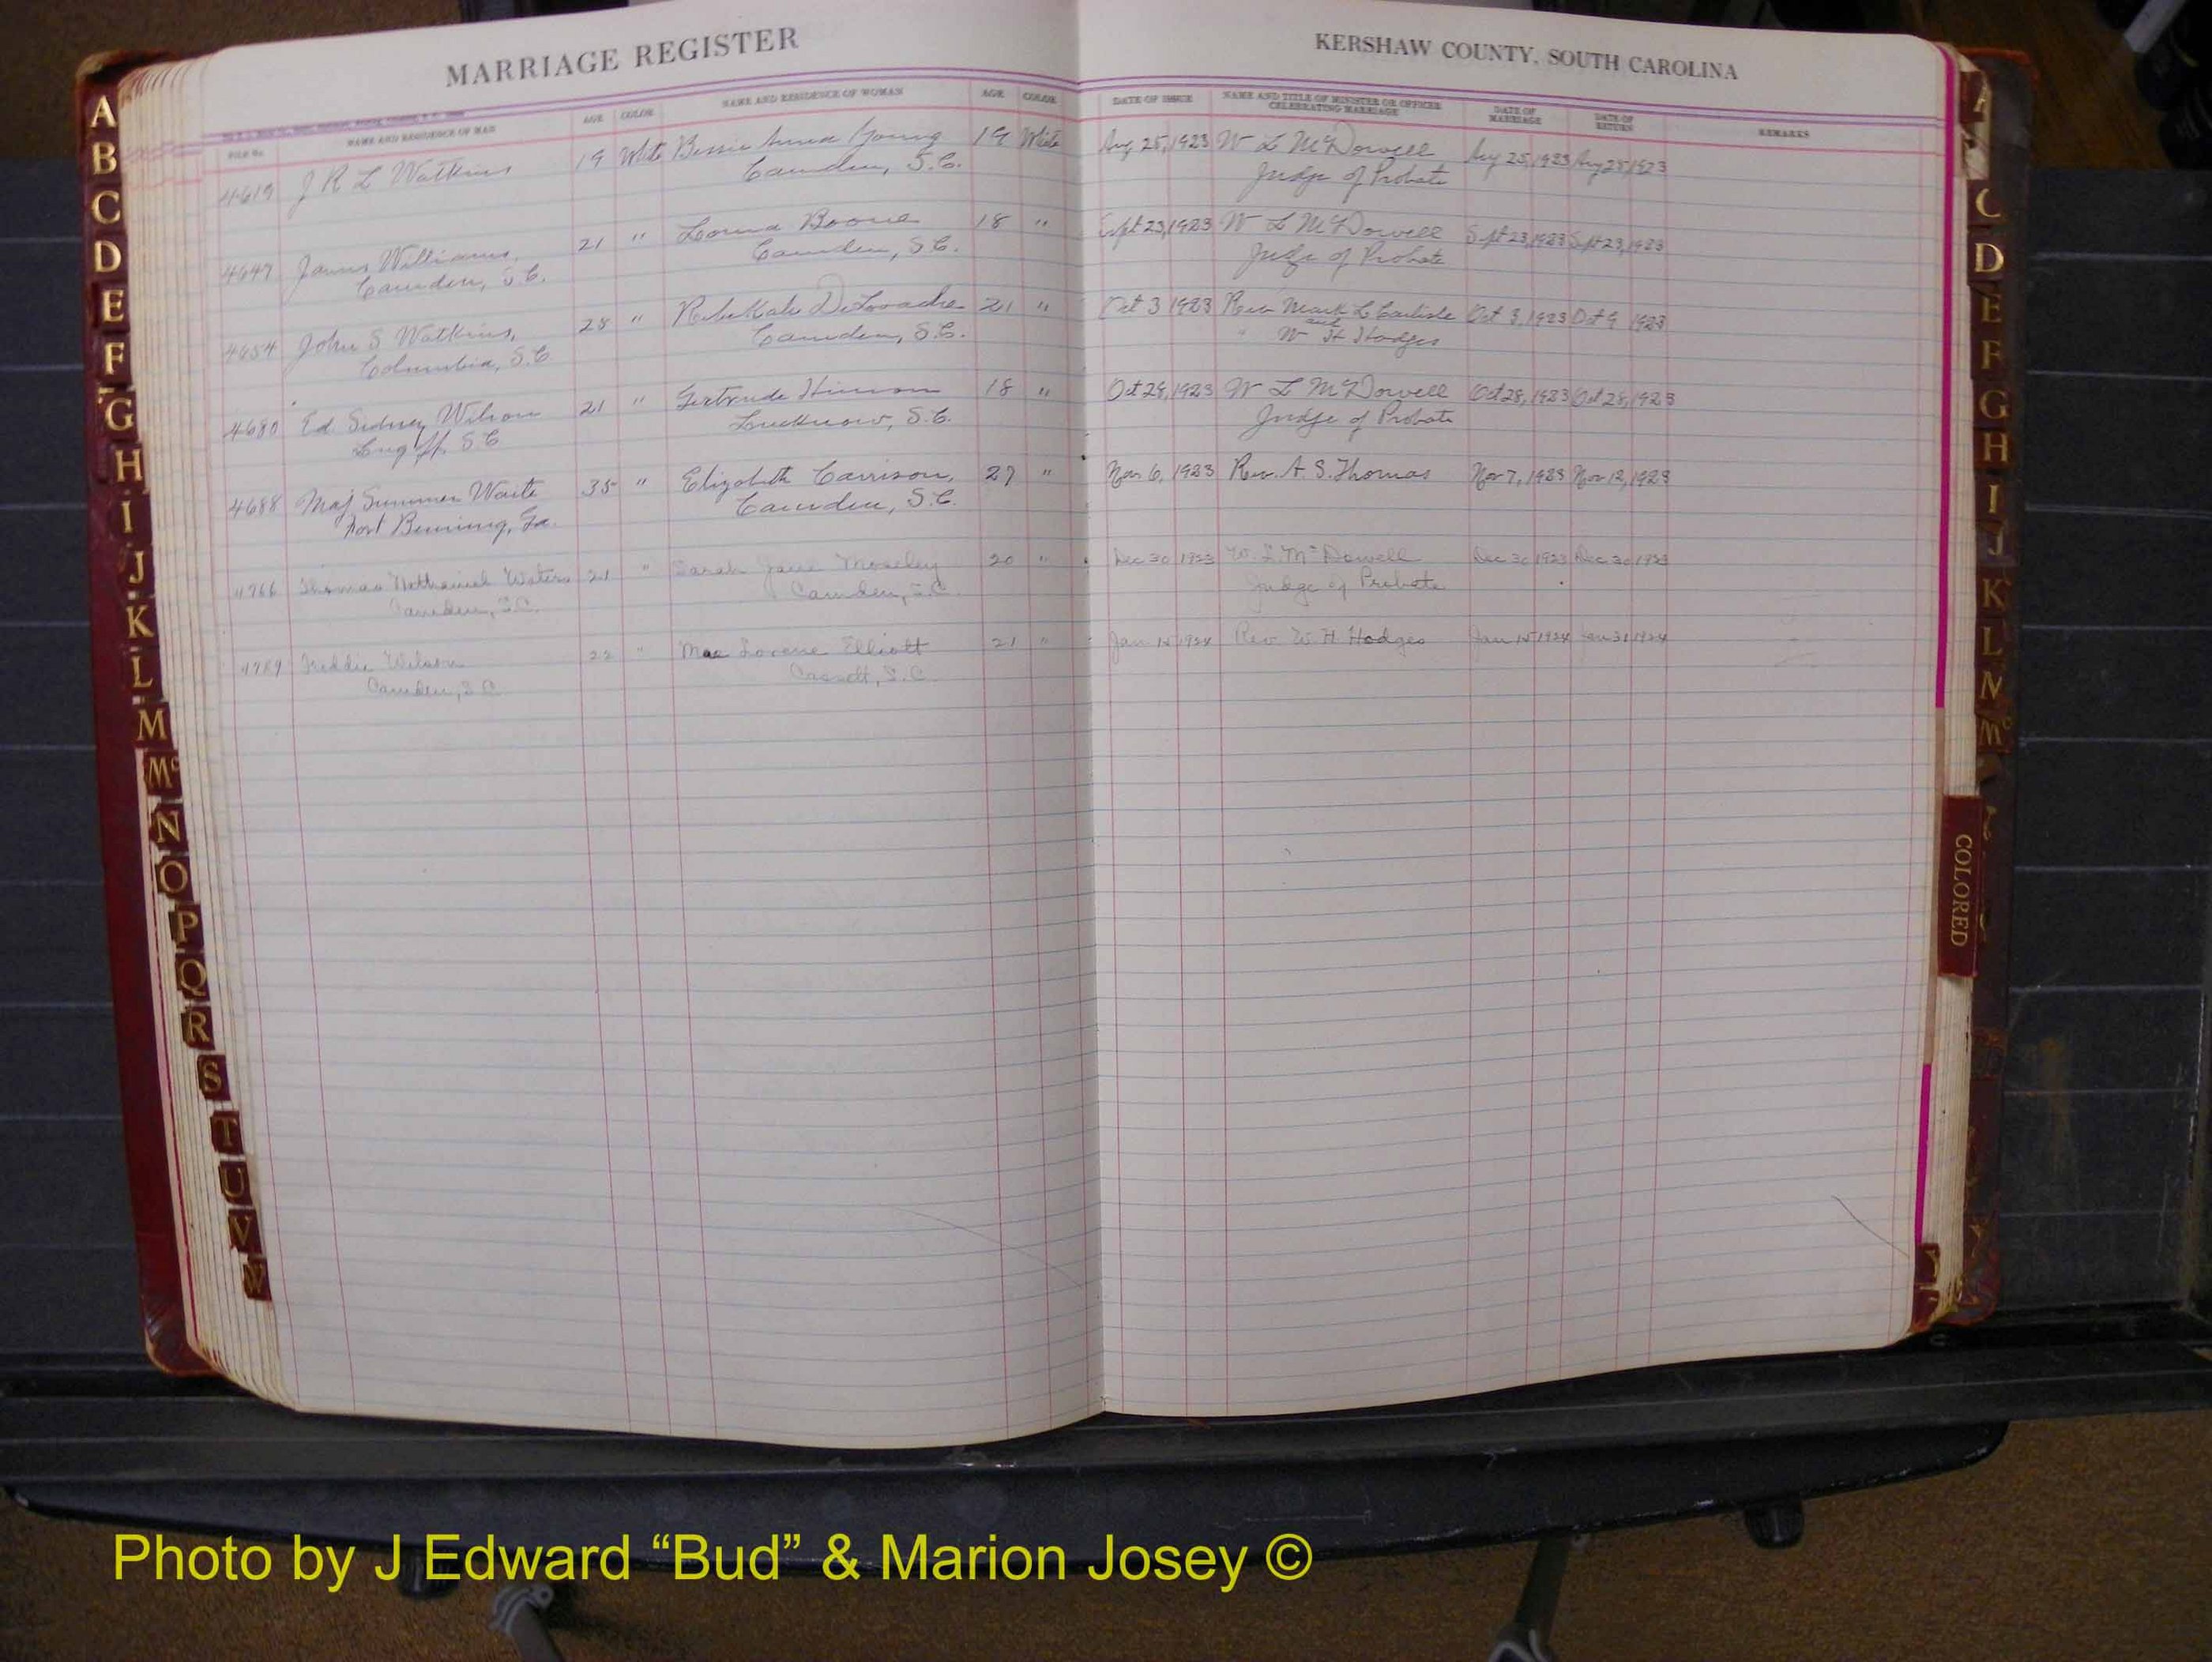 MARRIAGE REGISTER
KERSHAW COUNTY, SOUTH CAROLINA
FILE No. NAME AND RESIDENCE OF MAN AGE COLOR NAME AND RESIDENCE OF WOMAN AGE COLOR DATE OF ISSUE NAME AND TITLE OF MINISTER OR OFFICER CELEBRATING MARRIAGE DATE OF MARRIAGE DATE OF RETURN REMARKS
4619 J R L Watkins 19 White Bessie Young 19 White Aug 25, 1923 W L McDowell, Aug 25, 1923 Aug 25, 1923
Camden, S.C. Judge of Probate
4647 James Williams, 21 " Boone 18 " Sept 23, 1923 W L McDowell Sept 23, 1923 Sept 23, 1923
Camden, S.C. Camden, S.C. Judge of Probate
4654 John S Watkins, 28 " 21 " Oct 3 1923 Rev Mark L Carlisle Oct 3, 1923 Oct 9 1923
Columbia, S.C. Camden, S.C. " and W H Hodges
4680 Ed. Sidney Wilson 21 " Gertrude Hinson 18 " Oct 28, 1923 W L McDowell Oct 28, 1923 Oct 28, 1923
Lugoff, S.C. Lucknow, S.C. Judge of Probate
4688 Maj Sumner Waite 35 " Elizabeth Carrison, 27 " Nov 6, 1923 Rev. A. S. Thomas Nov 7, 1923 Nov 12, 1923
Fort Benning, Ga. Camden, S.C.
4766 Thomas Nathaniel Waters 21 " Sarah Jane Moseley 20 " Dec 30 1923 W. L. McDowell Dec 30 1923 Dec 30 1923
Camden, S.C. Camden, S.C. Judge of Probate
Freddie Wilson 22 " Mae Lorene Elliott 21 " Jan 1924 Rev. W. H. Hodges Jan 1924 Jan 31 1924
Camden, S.C. Cassett, S.C.
A
B
C
D
E
F
G
H
I
J
K
L
M
Mc
N
O
P
Q
R
S
T
U
V
W
C
D
E
F
G
H
I
J
K
L
M
Mc
COLORED
Photo by J Edward “Bud” & Marion Josey ©